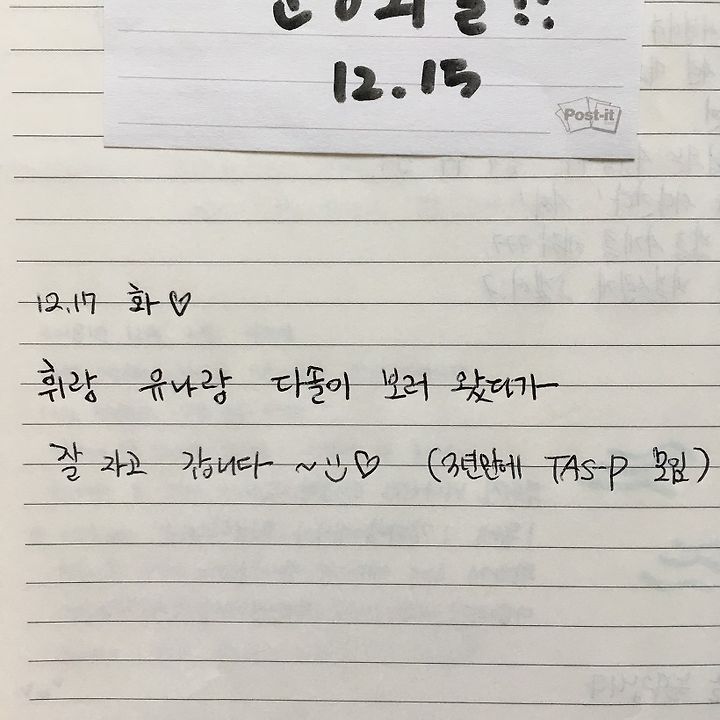 12.15
Post-it
12.17 화♡
휘랑 유나랑 다솔이 보러 왔다가
잘 자고 갑니다 ~:)♡ (3년만에 TAS-P 모임)